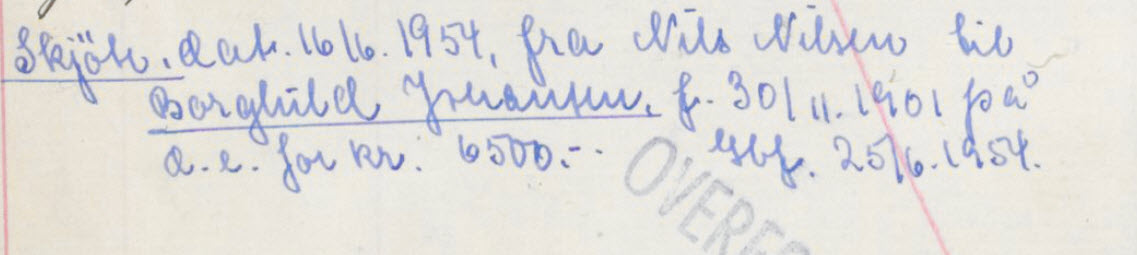 Skjöte, dat. 16/6. 1954, fra Nils Nilsen til
Borghild Johansen, f. 30/11. 1901 på
d. e. for kr. 6500.-.  Tgbf. 25/6. 1954.
OVERFØ